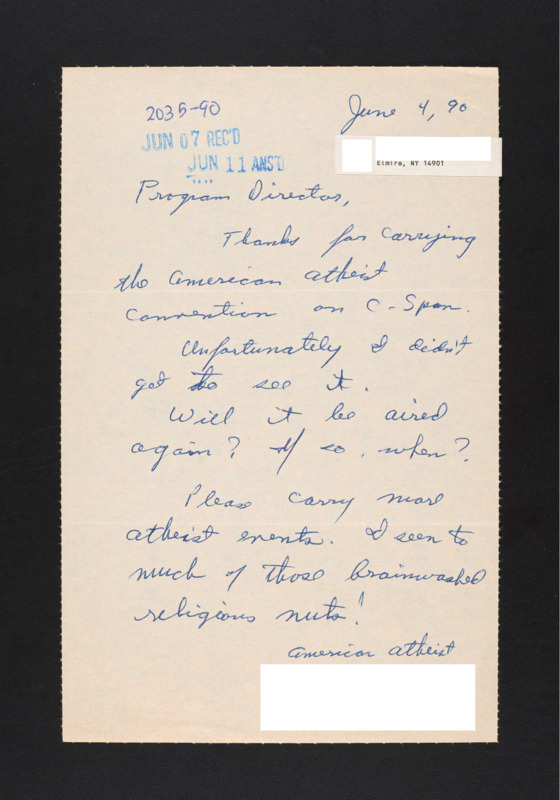 2035-90
June 4, 90
JUN 07 REC'D
JUN 11 ANS'D
Elmira, NY 14901
Program Director,
Thanks for carrying
the american atheist
convention on C-Span.
Unfortunately I didn't
get to see it.
Will it be aired
again? If so, when?
Please carry more
atheist events. I seen to
much of those brainwashed
religious nuts!
american atheist